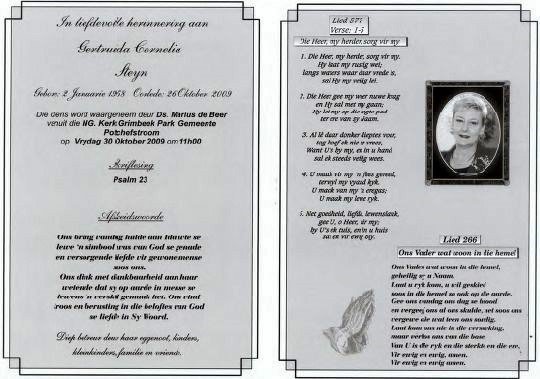 In liefdevolle herinnering aan
Gertruida Cornelis
Steyn
Gebore: 2 Januarie 1958 Oorlede: 26 Oktober 2009
Die diens word waargeneem deur Ds. Marius de Beer
vanuit die NG. Kerk Grimbeek Park Gemeente
Potchefstroom
op Vrydag 30 Oktober 2009 om 11h00
Skriflesing
Psalm 23
Afskeidswoorde
lewe 'n simbool was van God se genade
en versorgende liefde vir gewonemense
soos ons.
Ons dink met dankbaarheid aan haar
wetende dat sy op aarde in mense se
lewens 'n verskil gemaak het. Ons vind
troos en berusting in die beloftes van God
se liefde in Sy Woord.
Diep betreur deur haar eggenoot, kinders,
kleinkinders, familie en vriende.
Lied 571
Verse: 1-5
Die Heer, my herder, sorg vir my
1. Die Heer, my herder, sorg vir my.
Hy laat my rustig wei;
langs waters waar daar vrede is,
sal Hy my veilig lei.
2. Die Heer gee my weer nuwe krag
en Hy sal met my gaan;
Hy lei my op die regte pad
ter ere van sy naam.
3. Al lê daar donker dieptes voor,
tog hoef ek nie te vrees,
Want U's by my, es in u hand
sal ek steeds veilig wees.
4. U maak vir my 'n fees gereed,
terwyl my vyand kyk.
U maak van my 'n eregas;
U maak my lewe ryk.
5. Net goedheid, liefde, lewenslank,
gee U, o Heer, vir my;
by U's ek tuis, en in u huis
sal ek vir ewig bly.
Lied 266
Ons Vader wat woon in die hemel
Ons Vader wat woon in die hemel,
geheilig sy u Naam.
Laat u ryk kom, u wil geskied
soos in die hemel so ook op die aarde.
Gee ons vandag ons dag se brood
en vergeef ons al ons skulde, net soos ons
vergewe die wat teen ons sondig.
Laat kom ons nie in die versoeking,
maar verlos ons van die bose
Van U is die ryk en die sterkte en die ere,
Vir ewig en ewig, amen.
Vir ewig en ewig, amen.